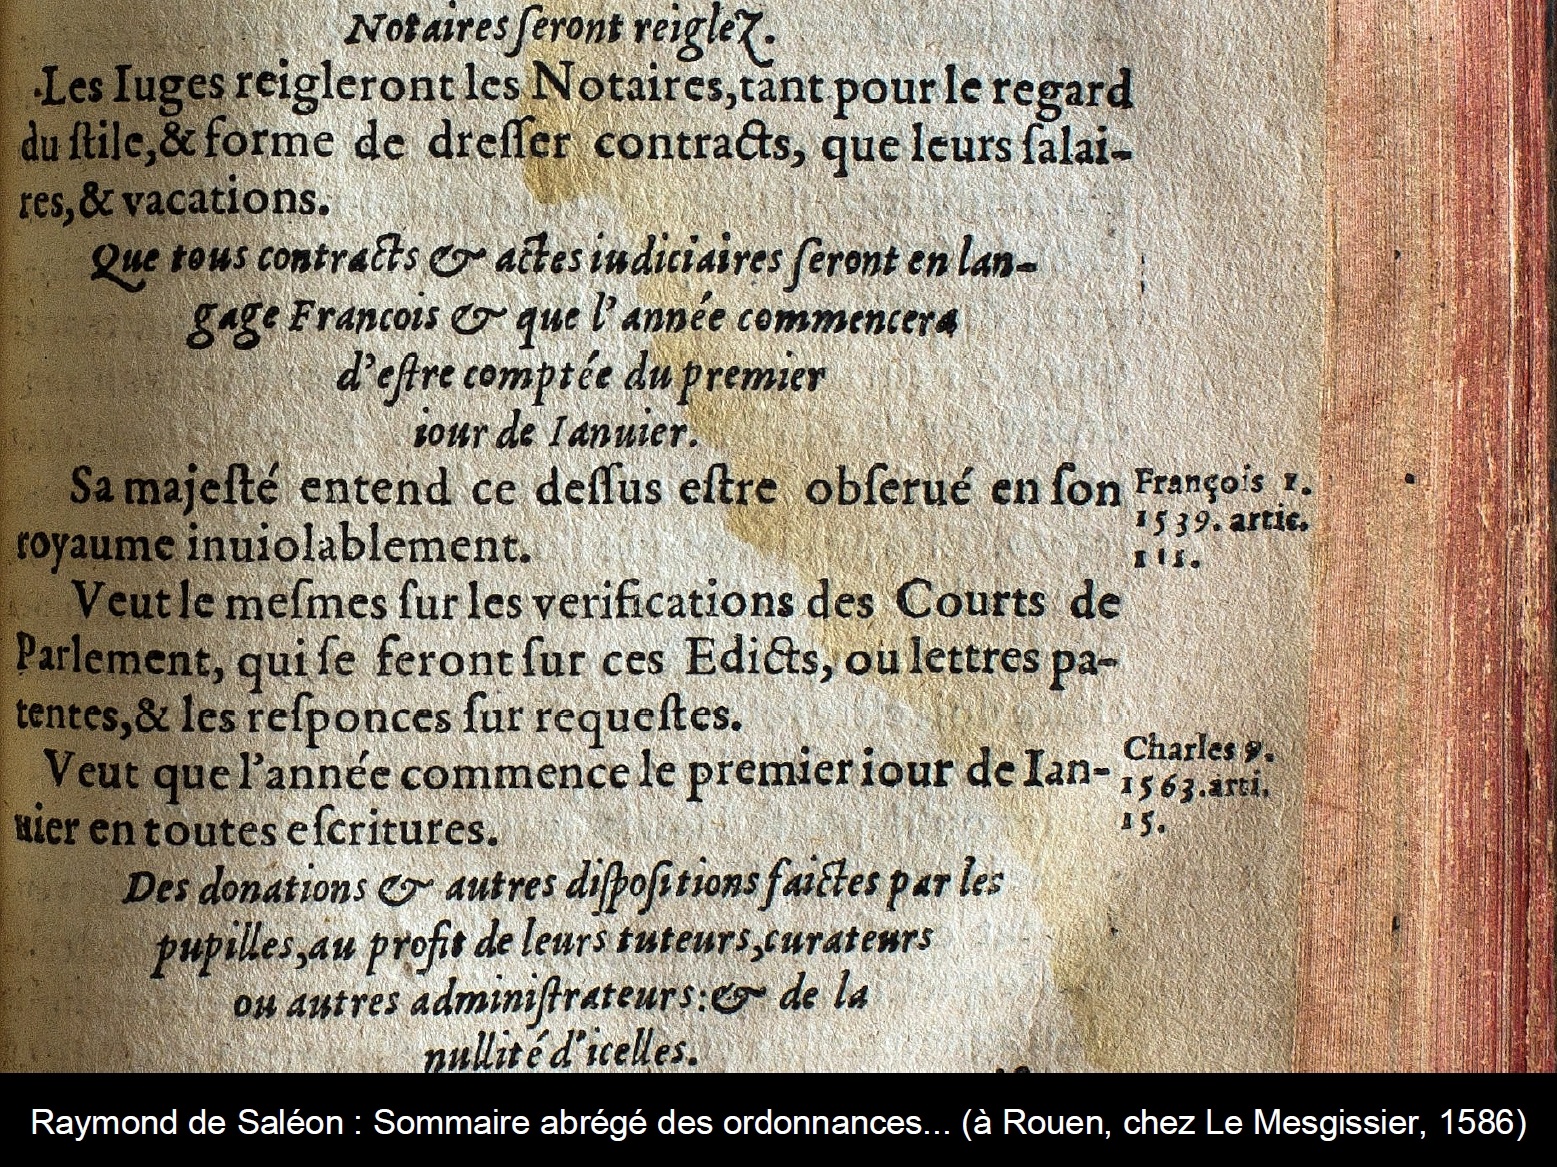 Notaires ſeront reiglez.
Les Iuges reigleront les Notaires, tant pour le regard
du ſtile, & forme de dreſſer contracts, que leurs ſalai-
res, & vacations.
Que tous contracts & actes iudiciaires ſeront en lan-
gage Francois & que l'année commencera
d'eſtre comptée du premier
iour de Ianuier.
Sa majeſté entend ce deſſus eſtre obſerué en ſon
royaume inuiolablement.
François 1.
1539. artic.
111.
Veut le meſmes ſur les verifications des Courts de
Parlement, qui ſe feront ſur ces Edicts, ou lettres pa-
tentes, & les reſponces ſur requeſtes.
Veut que l'année commence le premier iour de Ian-
uier en toutes eſcritures.
Charles 9.
1563. arti.
15.
Des donations & autres diſpoſitions faictes par les
pupilles, au profit de leurs tuteurs, curateurs
ou autres adminiſtrateurs: & de la
nullité d'icelles.
Raymond de Saléon : Sommaire abrégé des ordonnances... (à Rouen, chez Le Mesgissier, 1586)